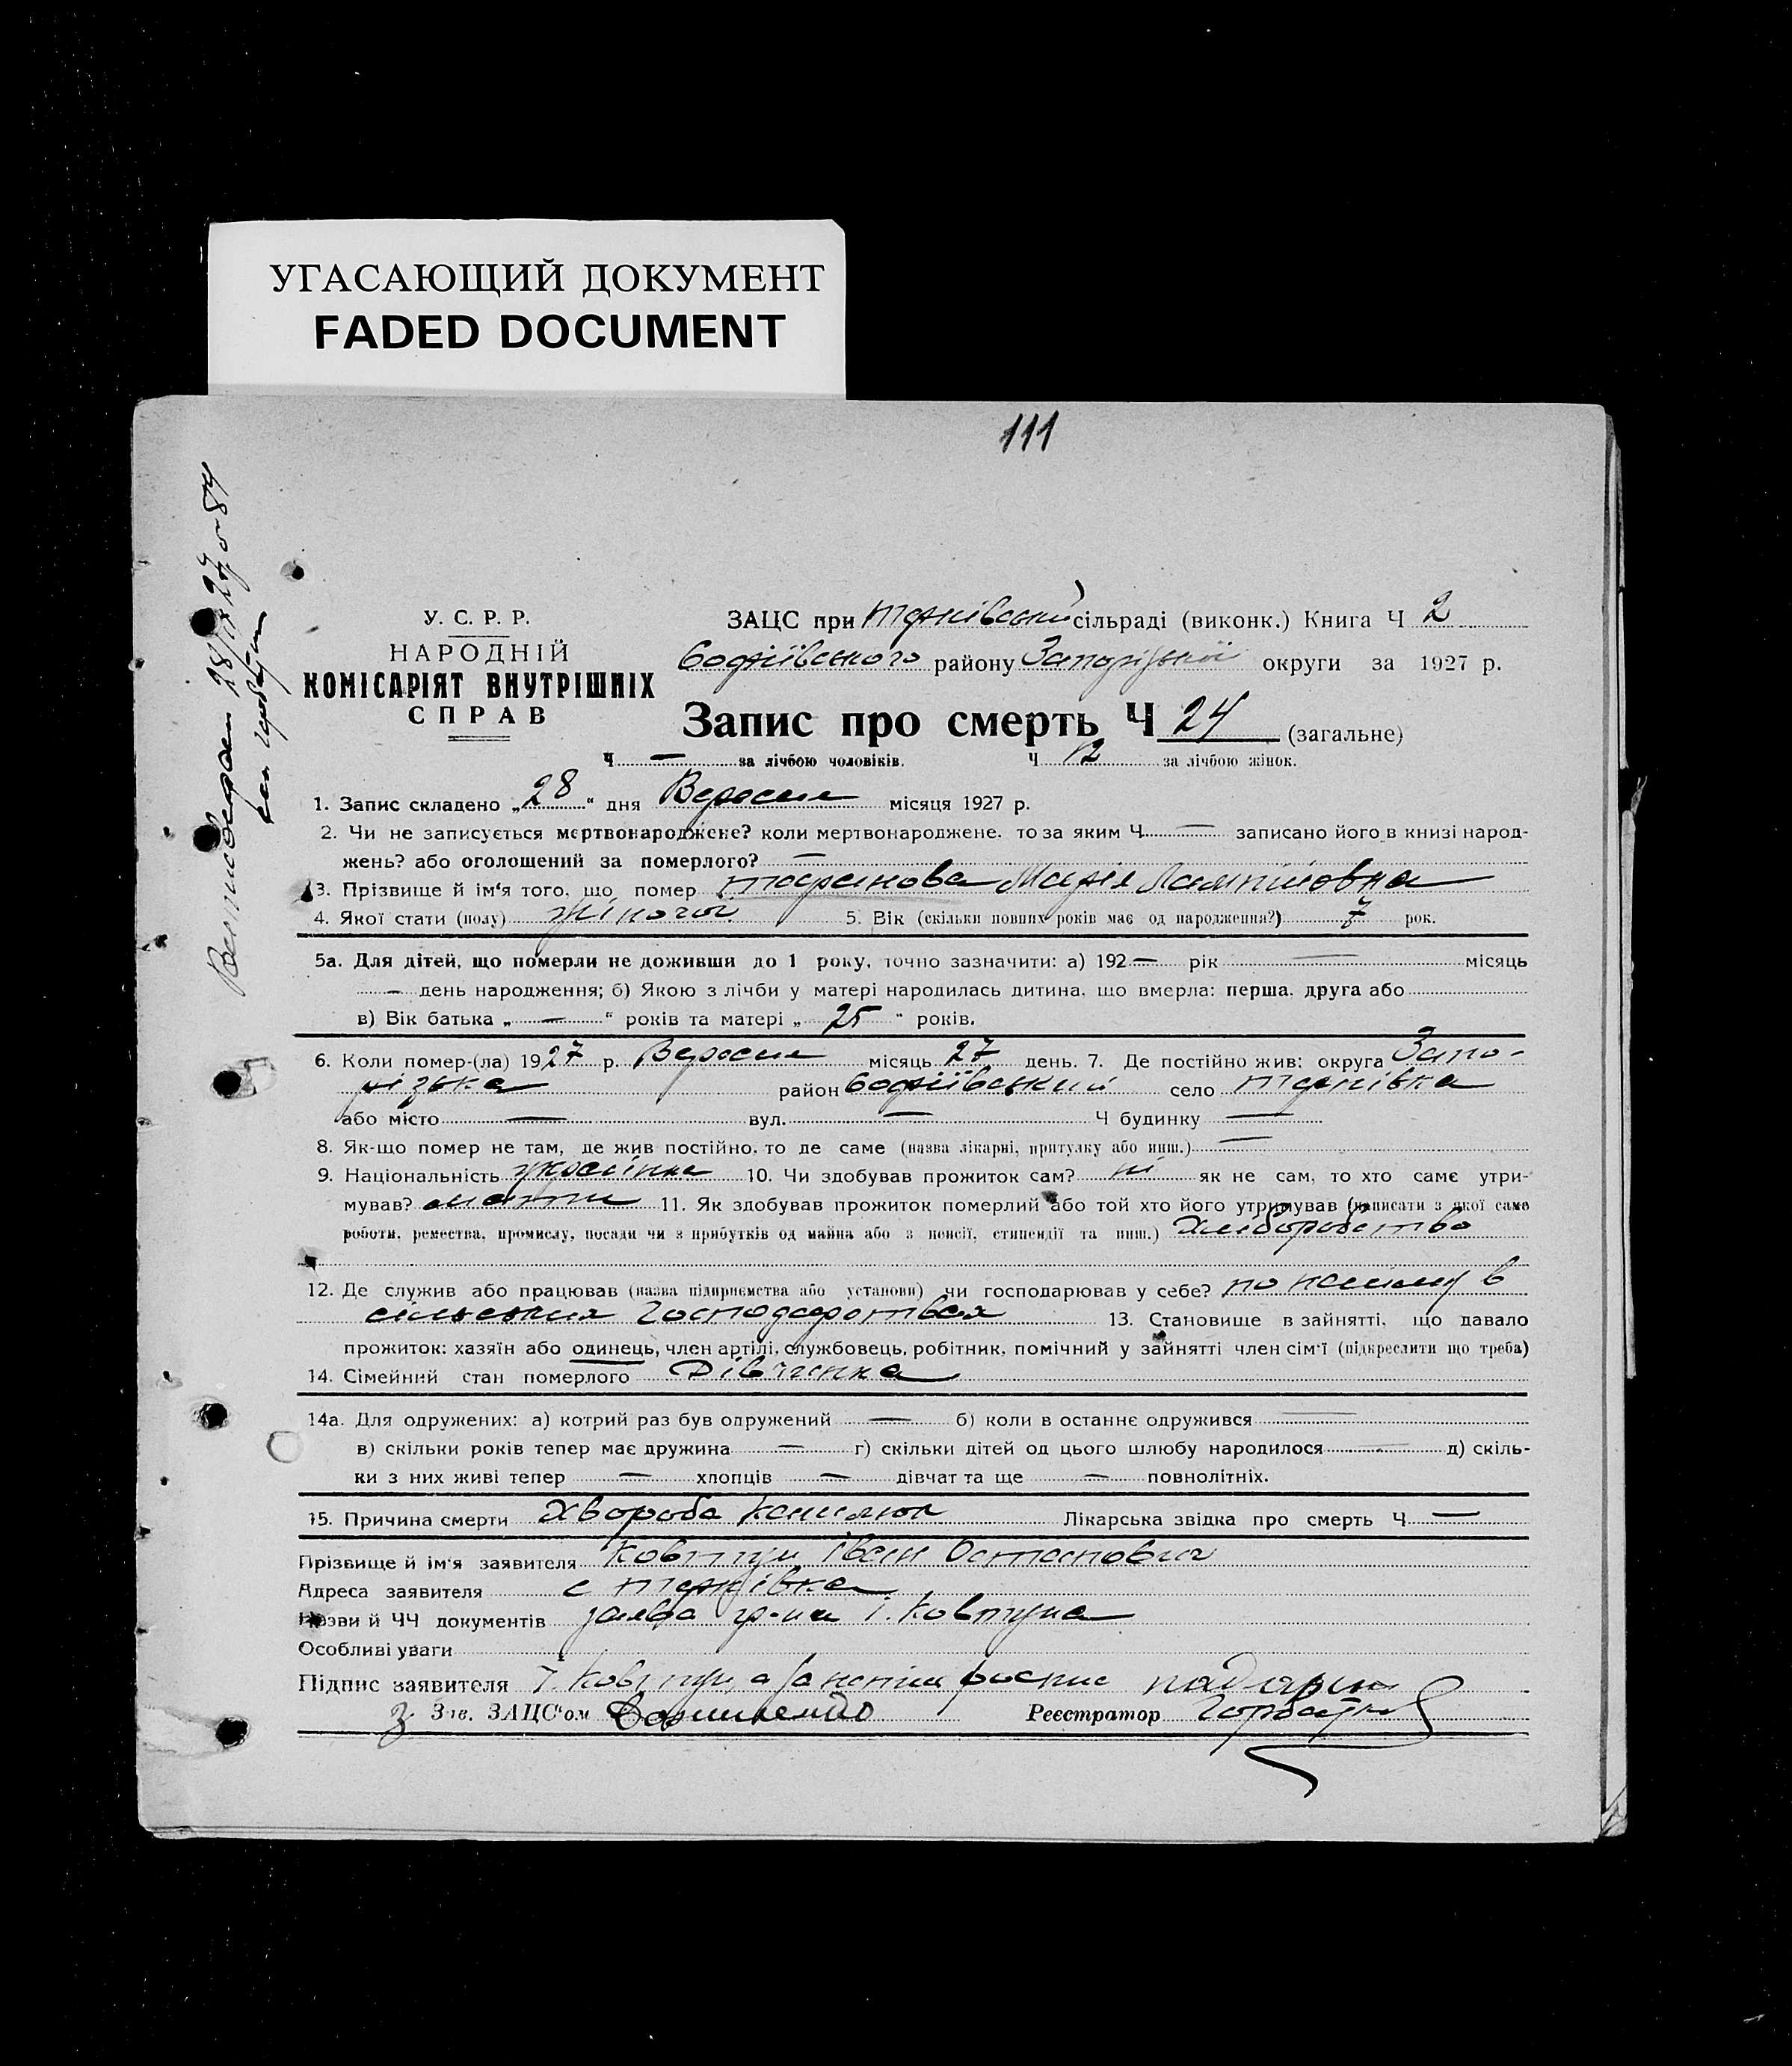 УГАСАЮЩИЙ ДОКУМЕНТ
FADED DOCUMENT
111
У. С. Р. Р.
НАРОДНІЙ
КОМІСАРІЯТ ВНУТРІШНІХ
СПРАВ
ЗАЦС при сільраді (виконк.) Книга Ч 2
району Запорізької округи за 1927 р.
Запис про смерть Ч 24 (загальне)
Ч — за лічбою чоловіків. Ч 12 за лічбою жінок.
1. Запис складено „28“ дня Вересня місяця 1927 р.
2. Чи не записується мертвонароджене? коли мертвонароджене, то за яким Ч — записано його в книзі народ-
жень? або оголошений за померлого? —
3. Прізвище й ім‘я того, що помер Таранова Марія Лампійовна
4. Якої стати (полу) жіночої 5. Вік (скільки повних років має од народження?) 7 рок.
5а. Для дітей, що померли не доживши до 1 року, точно зазначити: а) 192— рік — місяць
— день народження; б) Якою з лічби у матері народилась дитина, що вмерла: перша, друга або
в) Вік батька „—“ років та матері „25“ років.
6. Коли помер-(ла) 1927 р. Вересня місяць 27 день. 7. Де постійно жив: округа Запо-
різька район село Тернівка
або місто — вул. — Ч будинку —
8. Як-що помер не там, де жив постійно, то де саме (назва лікарні, притулку або инш.) —
9. Національність українка 10. Чи здобував прожиток сам? ні як не сам, то хто саме утри-
мував? мати 11. Як здобував прожиток померлий або той хто його утримував (написати з якої саме
роботи, ремества, промислу, посади чи з прибутків од майна або з пенсії, стипендії та инш.) Хліборобство
12. Де служив або працював (назва підприємства або установи) чи господарював у себе? по найму в
господарстві 13. Становище в зайнятті, що давало
прожиток: хазяїн або одинець, член артілі, службовець, робітник, помічний у зайнятті член сім‘ї (підкреслити що треба)
14. Сімейний стан померлого Дівчинка
14а. Для одружених: а) котрий раз був одружений — б) коли в останнє одружився —
в) скільки років тепер має дружина — г) скільки дітей од цього шлюбу народилося — д) скіль-
ки з них живі тепер — хлопців — дівчат та ще — повнолітніх.
15. Причина смерти Хвороба Лікарська звідка про смерть Ч —
Прізвище й ім‘я заявителя Ковтун Іван Остапович
Адреса заявителя с Тернівка
Назви й ЧЧ документів заява гр-на І. Ковтуна
Особливі уваги
Підпис заявителя І. Ковтун, а
З Зав. ЗАЦС‘ом Реєстратор